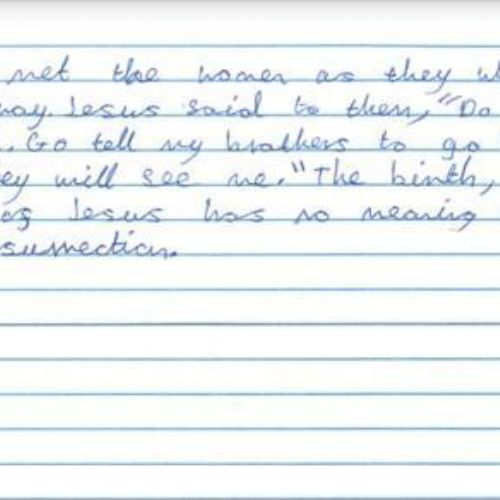 met the women as they w
way. Jesus said to them, "Do
. Go tell my brothers to go
ey will see me." The birth,
of Jesus has no meaning
surrection.